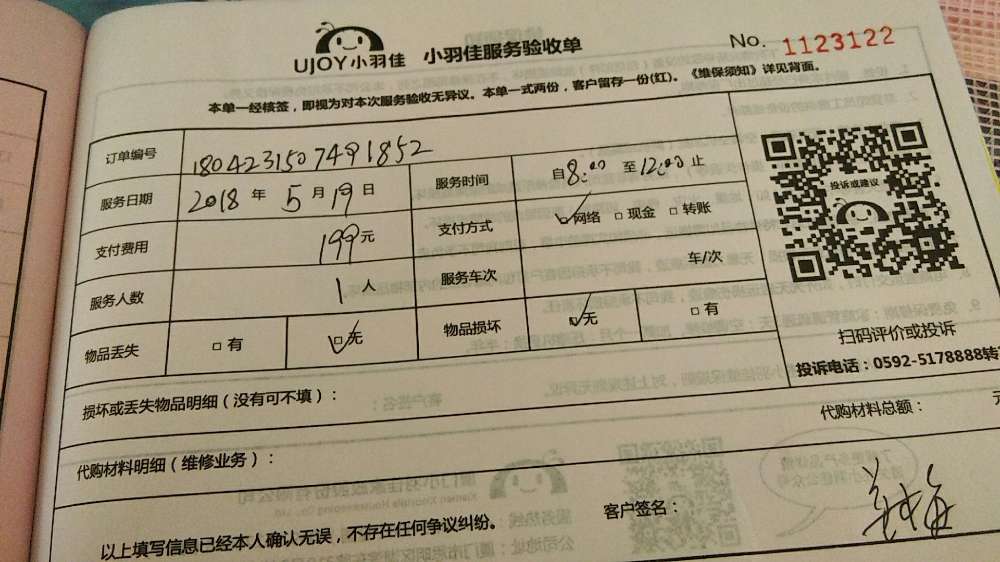 UJOY小羽佳 小羽佳服务验收单 No. 1123122
本单一经核签，即视为对本次服务验收无异议。本单一式两份，客户留存一份(红)。《维保须知》详见背面。
订单编号 1804231507491852
服务日期 2018 年 5 月 19 日 服务时间 自8:00 至12:00 止
支付费用 199元 支付方式 ☑网络 □现金 □转账
服务人数 1人 服务车次 车/次
物品丢失 □有 ☑无 物品损坏 ☑无 □有
投诉或建议
扫码评价或投诉
投诉电话：0592-5178888转
损坏或丢失物品明细（没有可不填）：
代购材料明细（维修业务）： 代购材料总额： 元
以上填写信息已经本人确认无误，不存在任何争议纠纷。 客户签名：